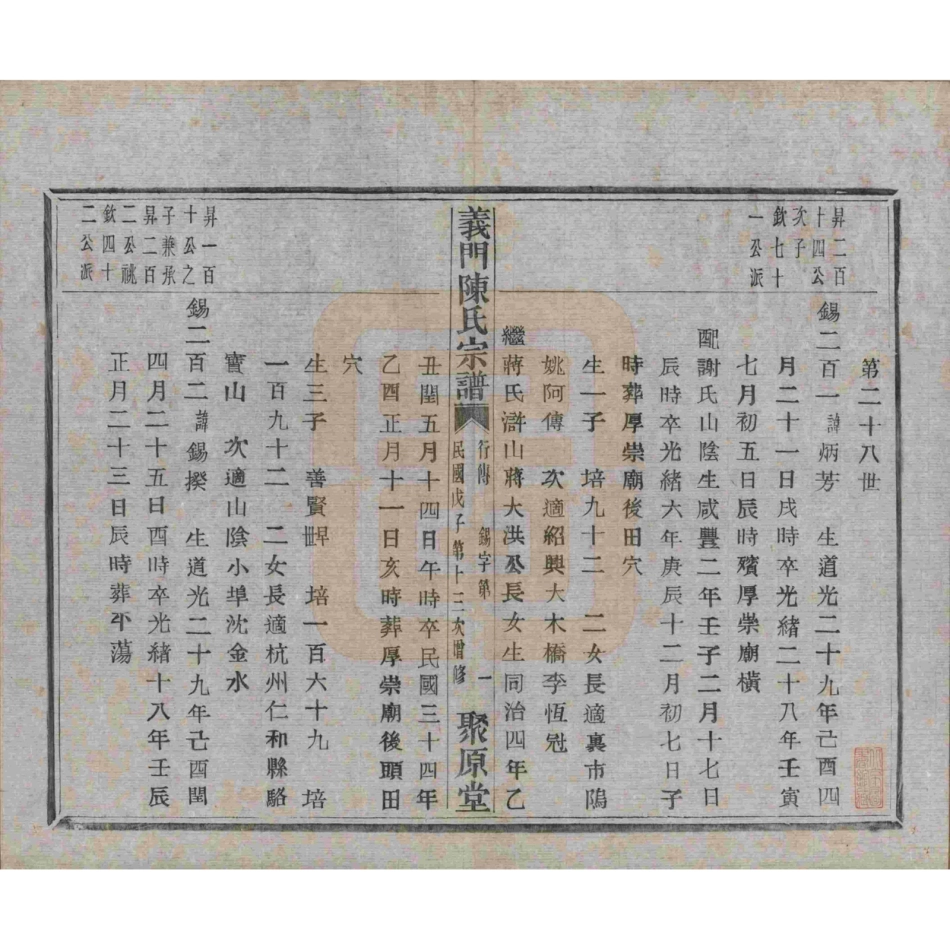 昇二百
十四公
次子
欽七十
一公派
第二十八世
錫二百一 諱炳芳 生道光二十九年己酉四
月二十一日戌時卒光緒二十八年壬寅
七月初五日辰時殯厚崇廟橫
配謝氏山陰生咸豐二年壬子二月十七日
辰時卒光緒六年庚辰十二月初七日子
時葬厚崇廟後田穴
生一子 培九十二 二女長適裏市隖
姚阿傳 次適紹興大木橋李恆冠
繼蔣氏滸山蔣大洪公長女生同治四年乙
義門陳氏宗譜
行傳 錫字第 一
民國戊子第十三次增修
聚原堂
丑閏五月十四日午時卒民國三十四年
乙酉正月十一日亥時葬厚崇廟後頭田
穴
生三子 善賢 培一百六十九 培
一百九十二 二女長適杭州仁和縣駱
寶山 次適山陰小埠沈金水
昇一百
十公之
子兼承
昇二百
二公祧
欽四十
二公派
錫二百二 諱錫揆 生道光二十九年己酉閏
四月二十五日酉時卒光緒十八年壬辰
正月二十三日辰時葬不蕩